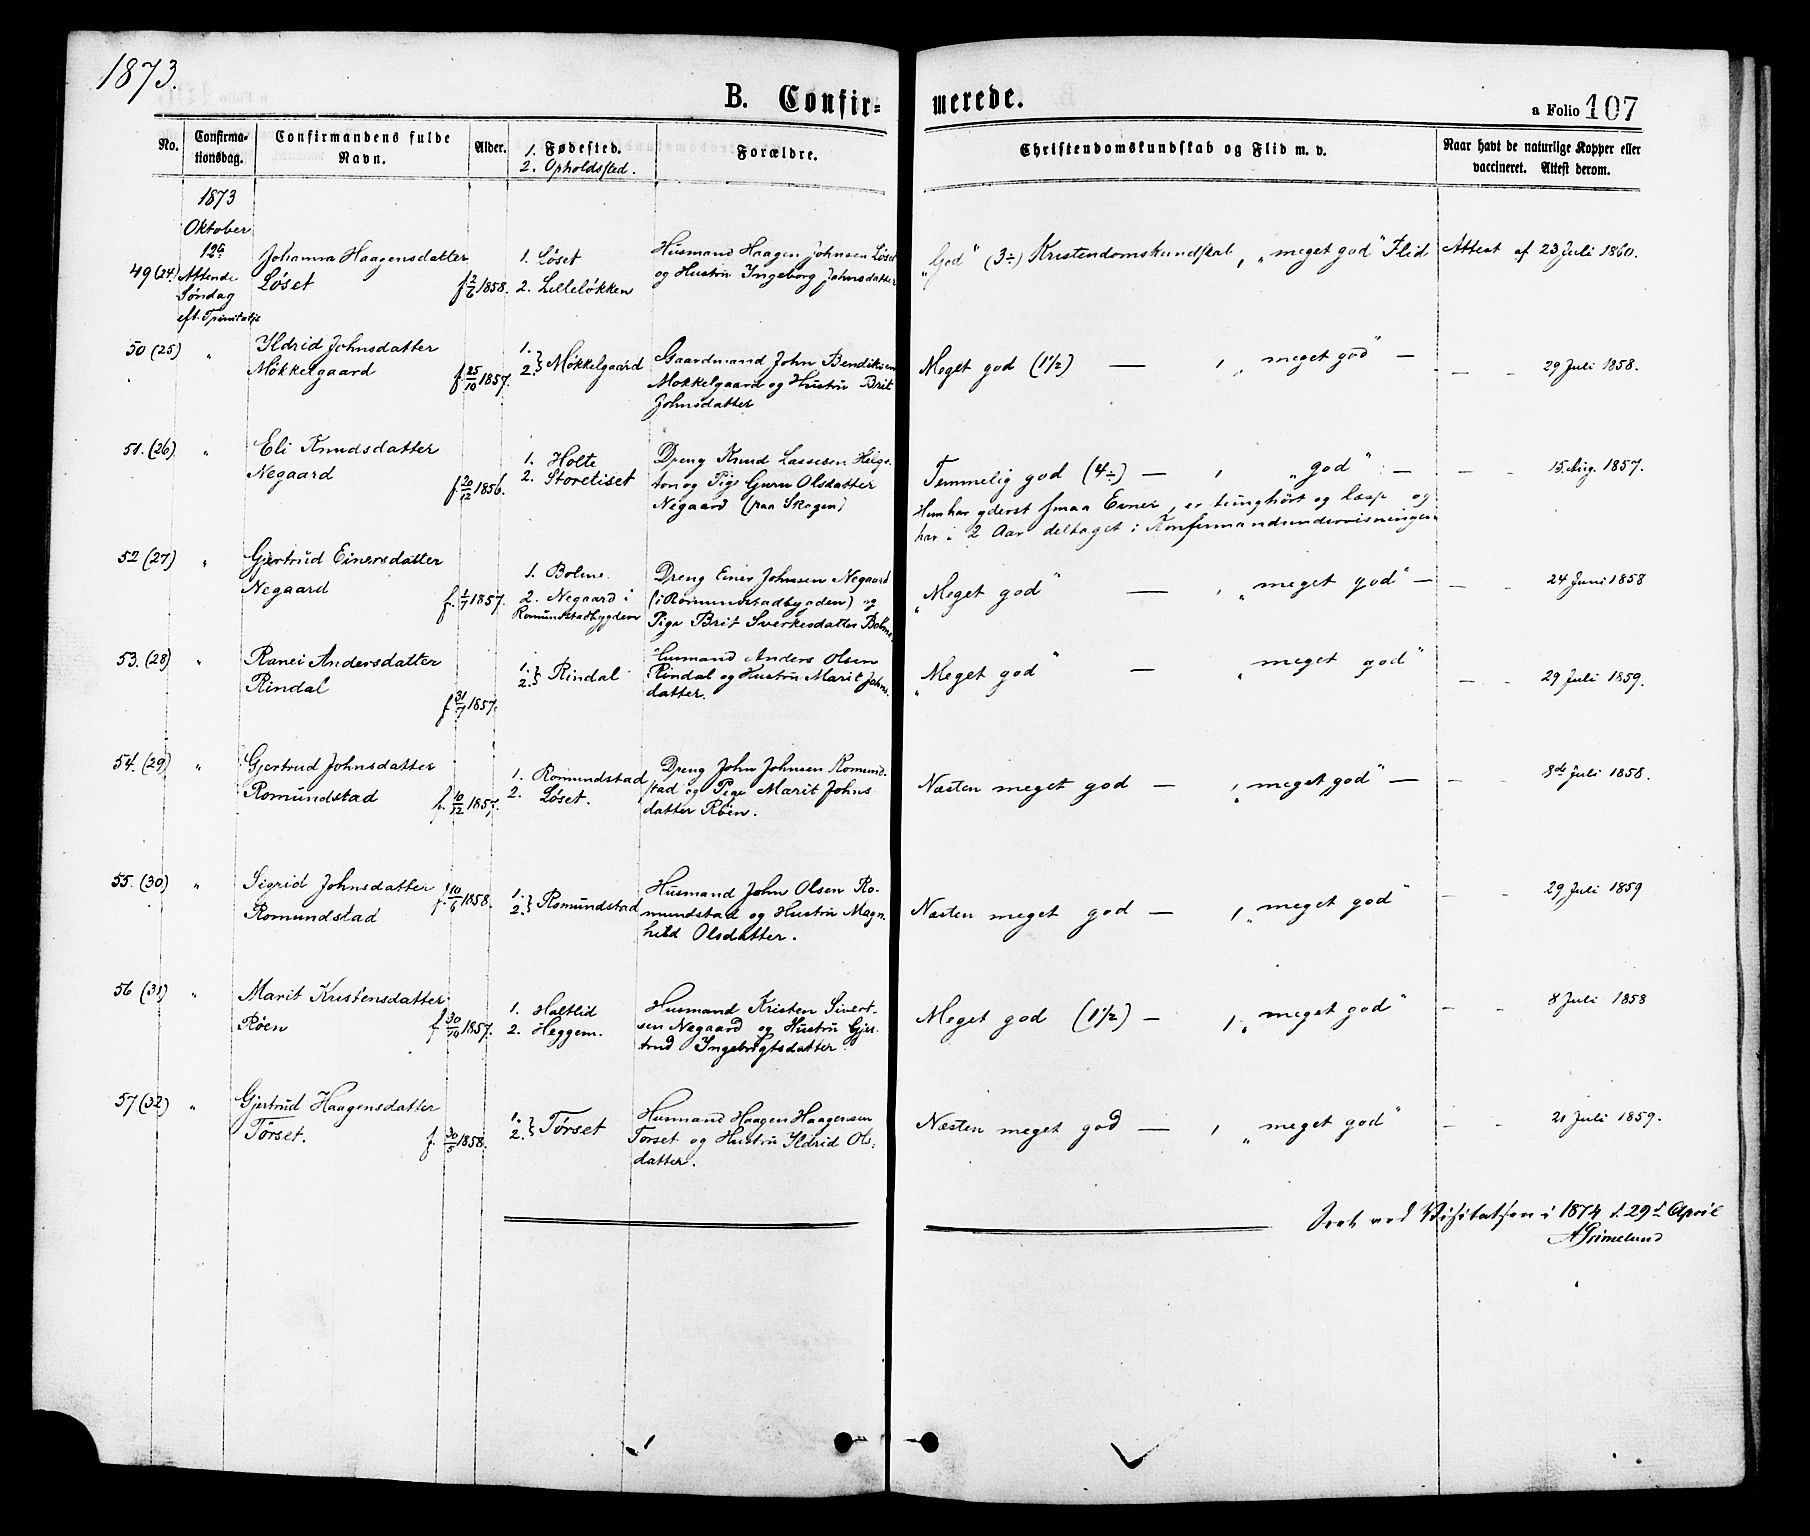 1873.
B. Confir-
merede.
a Folio 107
No.
Confirma-
tionsdag.
Confirmandens fulde
Navn.
Alder.
1. Fødested.
2. Opholdssted.
Forældre.
Christendomskundskab og Flid m. v.
Naar havt de naturlige Kopper eller
vaccineret. Attest derom.
1873
Oktober
12te
49 (24)
Attende
Søndag
eft. Trinitatis
Johanna Haagensdatter
Løset
f 2/6 1858.
1. Løset
2. Lilleløkken
Husmand Haagen Johnsen Løset
og Hustru Ingeborg Johnsdatter
„God“ (3÷) Kristendomskundskab, „meget god“ Flid
Attest af 23 Juli 1860.
50 (25)
"
Ildrid Johnsdatter
Møkkelgaard
f. 25/10 1857.
1.
2. } Møkkelgaard
Gaardmand John Bendiksen
Møkkelgaard og Hustru Brit
Johnsdatter
Meget god (1½) — , „meget god“ —
— - 29 Juli 1858.
51. (26)
"
Eli Knudsdatter
Negaard
f. 20/12 1856.
1. Holte
2. Storeliset
Dreng Knud Lassesen Heigs-
ton og Pige Guru Olsdatter
Negaard (paa Skogen)
Temmelig god (4÷) — , „god“ —
Hun har yderst smaa Evner, er tunghørt og læsp og
har i 2 Aar deltaget i Konfirmandundervisningen
— - 15 Aug. 1857.
52 (27)
"
Gjertrud Einersdatter
Negaard
f. 1/7 1857.
1. Bolme
2. Negaard i
Romundstadbygden
Dreng Einer Johnsen Negaard
(i Romundstadbygden) og
Pige Brit Sverkesdatter Bolme
„Meget god“ — , „meget god“ —
— - 24 Juni 1858
53. (28)
"
Ranei Andersdatter
Rindal
f 31/7 1857.
1.
2. } Rindal
Husmand Anders Olsen
Rindal og Hustru Marit Johns-
datter.
„Meget god“ — „meget god“
— - 29 Juli 1859.
54. (29)
"
Gjertrud Johnsdatter
Romundstad
f. 10/12 1857.
1. Romundstad
2. Løset.
Dreng John Johnsen Romund-
stad og Pige Marit Johns-
datter Røen.
Næsten meget god — , „meget god“ —
— - 8de Juli 1858.
55. (30)
"
Sigrid Johnsdatter
Romundstad
f. 10/6 1858.
1.
2. } Romundstad
Husmand John Olsen Ro-
mundstad og Hustru Magn-
hild Olsdatter.
Næsten meget god — , „meget god“
— - 29 Juli 1859
56 (31)
"
Marit Kristensdatter
Røen
f 30/10 1857.
1. Haltlid
2. Heggem.
Husmand Kristen Sivert-
sen Negaard og Hustru Gjer-
trud Ingebrigtsdatter
Meget god (1½) — , „meget god“
— - 8 Juli 1858
57 (32)
"
Gjertrud Haagensdatter
Tørset.
f. 30/5 1858.
1.
2. } Tørset
Husmand Haagen Haagensen
Tørset og Hustru Ildrid Ols-
datter.
Næsten meget god — , „meget god“
— - 21 Juli 1859.
Seet ved Visitatsen i 1874 d. 29de April
A Grimelund